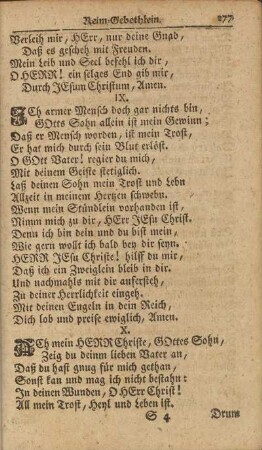 Reim-Gebethlein. 277
Verleih mir, HErr, nur deine Gnad,
Daß es gescheh mit Freuden.
Mein Leib und Seel befehl ich dir,
O HERR! ein selges End gib mir,
Durch JEsum Christum, Amen.
IX.
ICh armer Mensch doch gar nichts bin,
GOtts Sohn allein ist mein Gewinn;
Daß er Mensch worden, ist mein Trost,
Er hat mich durch sein Blut erlöst.
O GOtt Vater! regier du mich,
Mit deinem Geiste stetiglich.
Laß deinen Sohn mein Trost und Lebn
Allzeit in meinem Hertzen schwebn.
Wenn mein Stündlein vorhanden ist,
Nimm mich zu dir, HErr JEsu Christ.
Denn ich bin dein und du bist mein,
Wie gern wollt ich bald bey dir seyn.
HERR JEsu Christe! hilff du mir,
Daß ich ein Zweiglein bleib in dir.
Und nachmahls mit dir aufersteh,
Zu deiner Herrlichkeit eingeh.
Mit deinen Engeln in dein Reich,
Dich lob und preise ewiglich, Amen.
X.
ACh mein HERR Christe, GOttes Sohn,
Zeig du deinm lieben Vater an,
Daß du hast gnug für mich gethan,
Sonst kan und mag ich nicht bestahn:
In deinen Wunden, O HErr Christ!
All mein Trost, Heyl und Leben ist.
S 4 Drum